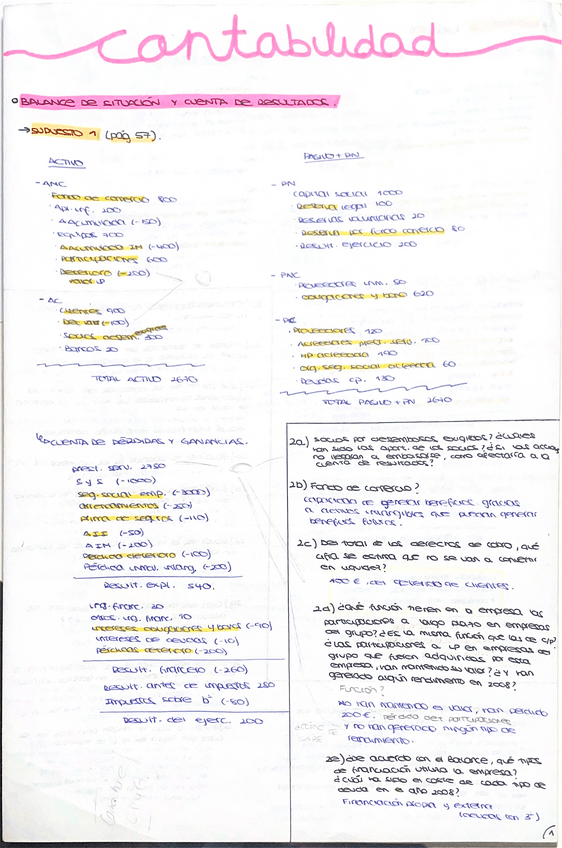 contabilidad
BALANCE DE SITUACIÓN Y CUENTA DE RESULTADOS.
→ SUPUESTO 1 (pág 57).
ACTIVO
- ANC
Fondo de comercio 800
· Apl. inf. 200
· AAcumulada (-150)
· Equipos 700
· AAcumulada IM (-400)
· Participaciones 600
· Deterioro (-200)
- AC
· Clientes 900
· Socios desem. exigidos 300
· Bancos 20
TOTAL ACTIVO 2670
PASIVO + PN
- PN
Capital social 1000
· Reserva legal 100
· Reservas voluntarias 20
· Reserva por fondo comercio 80
· Result. ejercicio 200
- PNC
· Proveedores inm. 50
· Obligaciones y bono 620
- PC
· Proveedores 120
· Acreedores prest. serv. 100
· HP acreedora 190
· Org. seg. social acreedora 60
· Deudas cp. 130
TOTAL PASIVO + PN 2670
CUENTA DE PÉRDIDAS Y GANANCIAS.
Prest. serv. 2750
S y S (-1000)
Seg. social emp. (-300)
Arrendamientos (-250)
Prima de seguros (-110)
AII (-50)
AIM (-200)
Pérdida deterioro (-100)
Result. expl. 540.
Ing. financ. 20
Otros. ing. financ. 10
Intereses obligaciones y bonos (-90)
Intereses de deudas (-10)
Pérdidas deterioro (-200)
Result. financiero (-260)
Result. antes de impuestos 280
Impuestos sobre bº (-80)
Result. del ejerc. 200
2a) Socios por desembolsos exigidos? ¿Cuáles
han sido las aport. de los socios? ¿Si los
no llegaran a embolsarse, cómo afectaría a la
cuenta de resultados?
2b) Fondo de comercio?
Capacidad de generar beneficios gracias
a activos intangibles que puedan generar
beneficios futuros.
2c) Del total de los derechos de cobro, qué
cifra se estima que no se van a convertir
en liquidez?
100 €, del deterioro de clientes.
2d) ¿Qué función tienen en la empresa las
participaciones a largo plazo en empresas
del grupo? ¿Es la misma función que las de c/p?
¿Las participaciones a LP en empresas de
grupo que fueron adquiridas por esta
empresa, han mantenido su valor? ¿Y han
generado algún rendimiento en 2008?
Función?
No han mantenido el valor, han perdido
200 €. Pérdida det participaciones
y no han generado ningún tipo de
rendimiento.
2e) ¿De acuerdo con el Balance, qué tipos
de financiación utiliza la empresa?
¿Cuál ha sido el coste de cada tipo de
deuda en el año 2008?
Financiación propia y externa
(deudas con 3º)
1